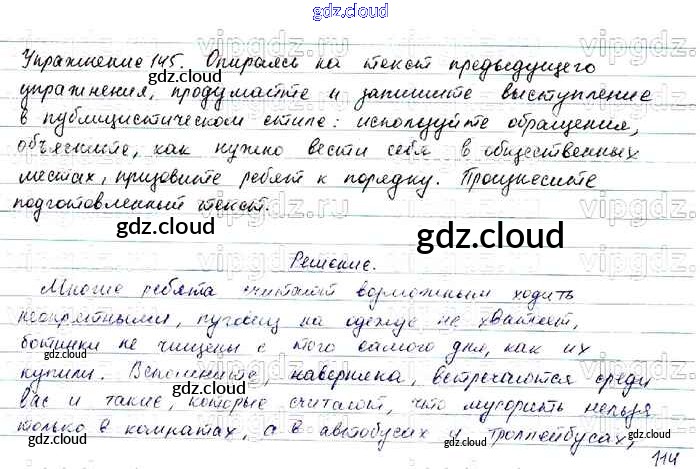 gdz.cloud
Упражнение 145. Опираясь на текст предыдущего
упражнения, продумайте и запишите выступление
в публицистическом стиле: используйте обращения,
объясните, как нужно вести себя в общественных
местах, призовите ребят к порядку. Произнесите
подготовленный текст.
Решение.
Многие ребята считают возможным ходить
неопрятными, пуговиц на одежде не хватает,
ботинки не чищены с того самого дня, как их
купили. Вспомните, наверняка, встречаются среди
вас и такие, которые считают, что мусорить нельзя
только в комнатах, а в автобусах и троллейбусах,
114